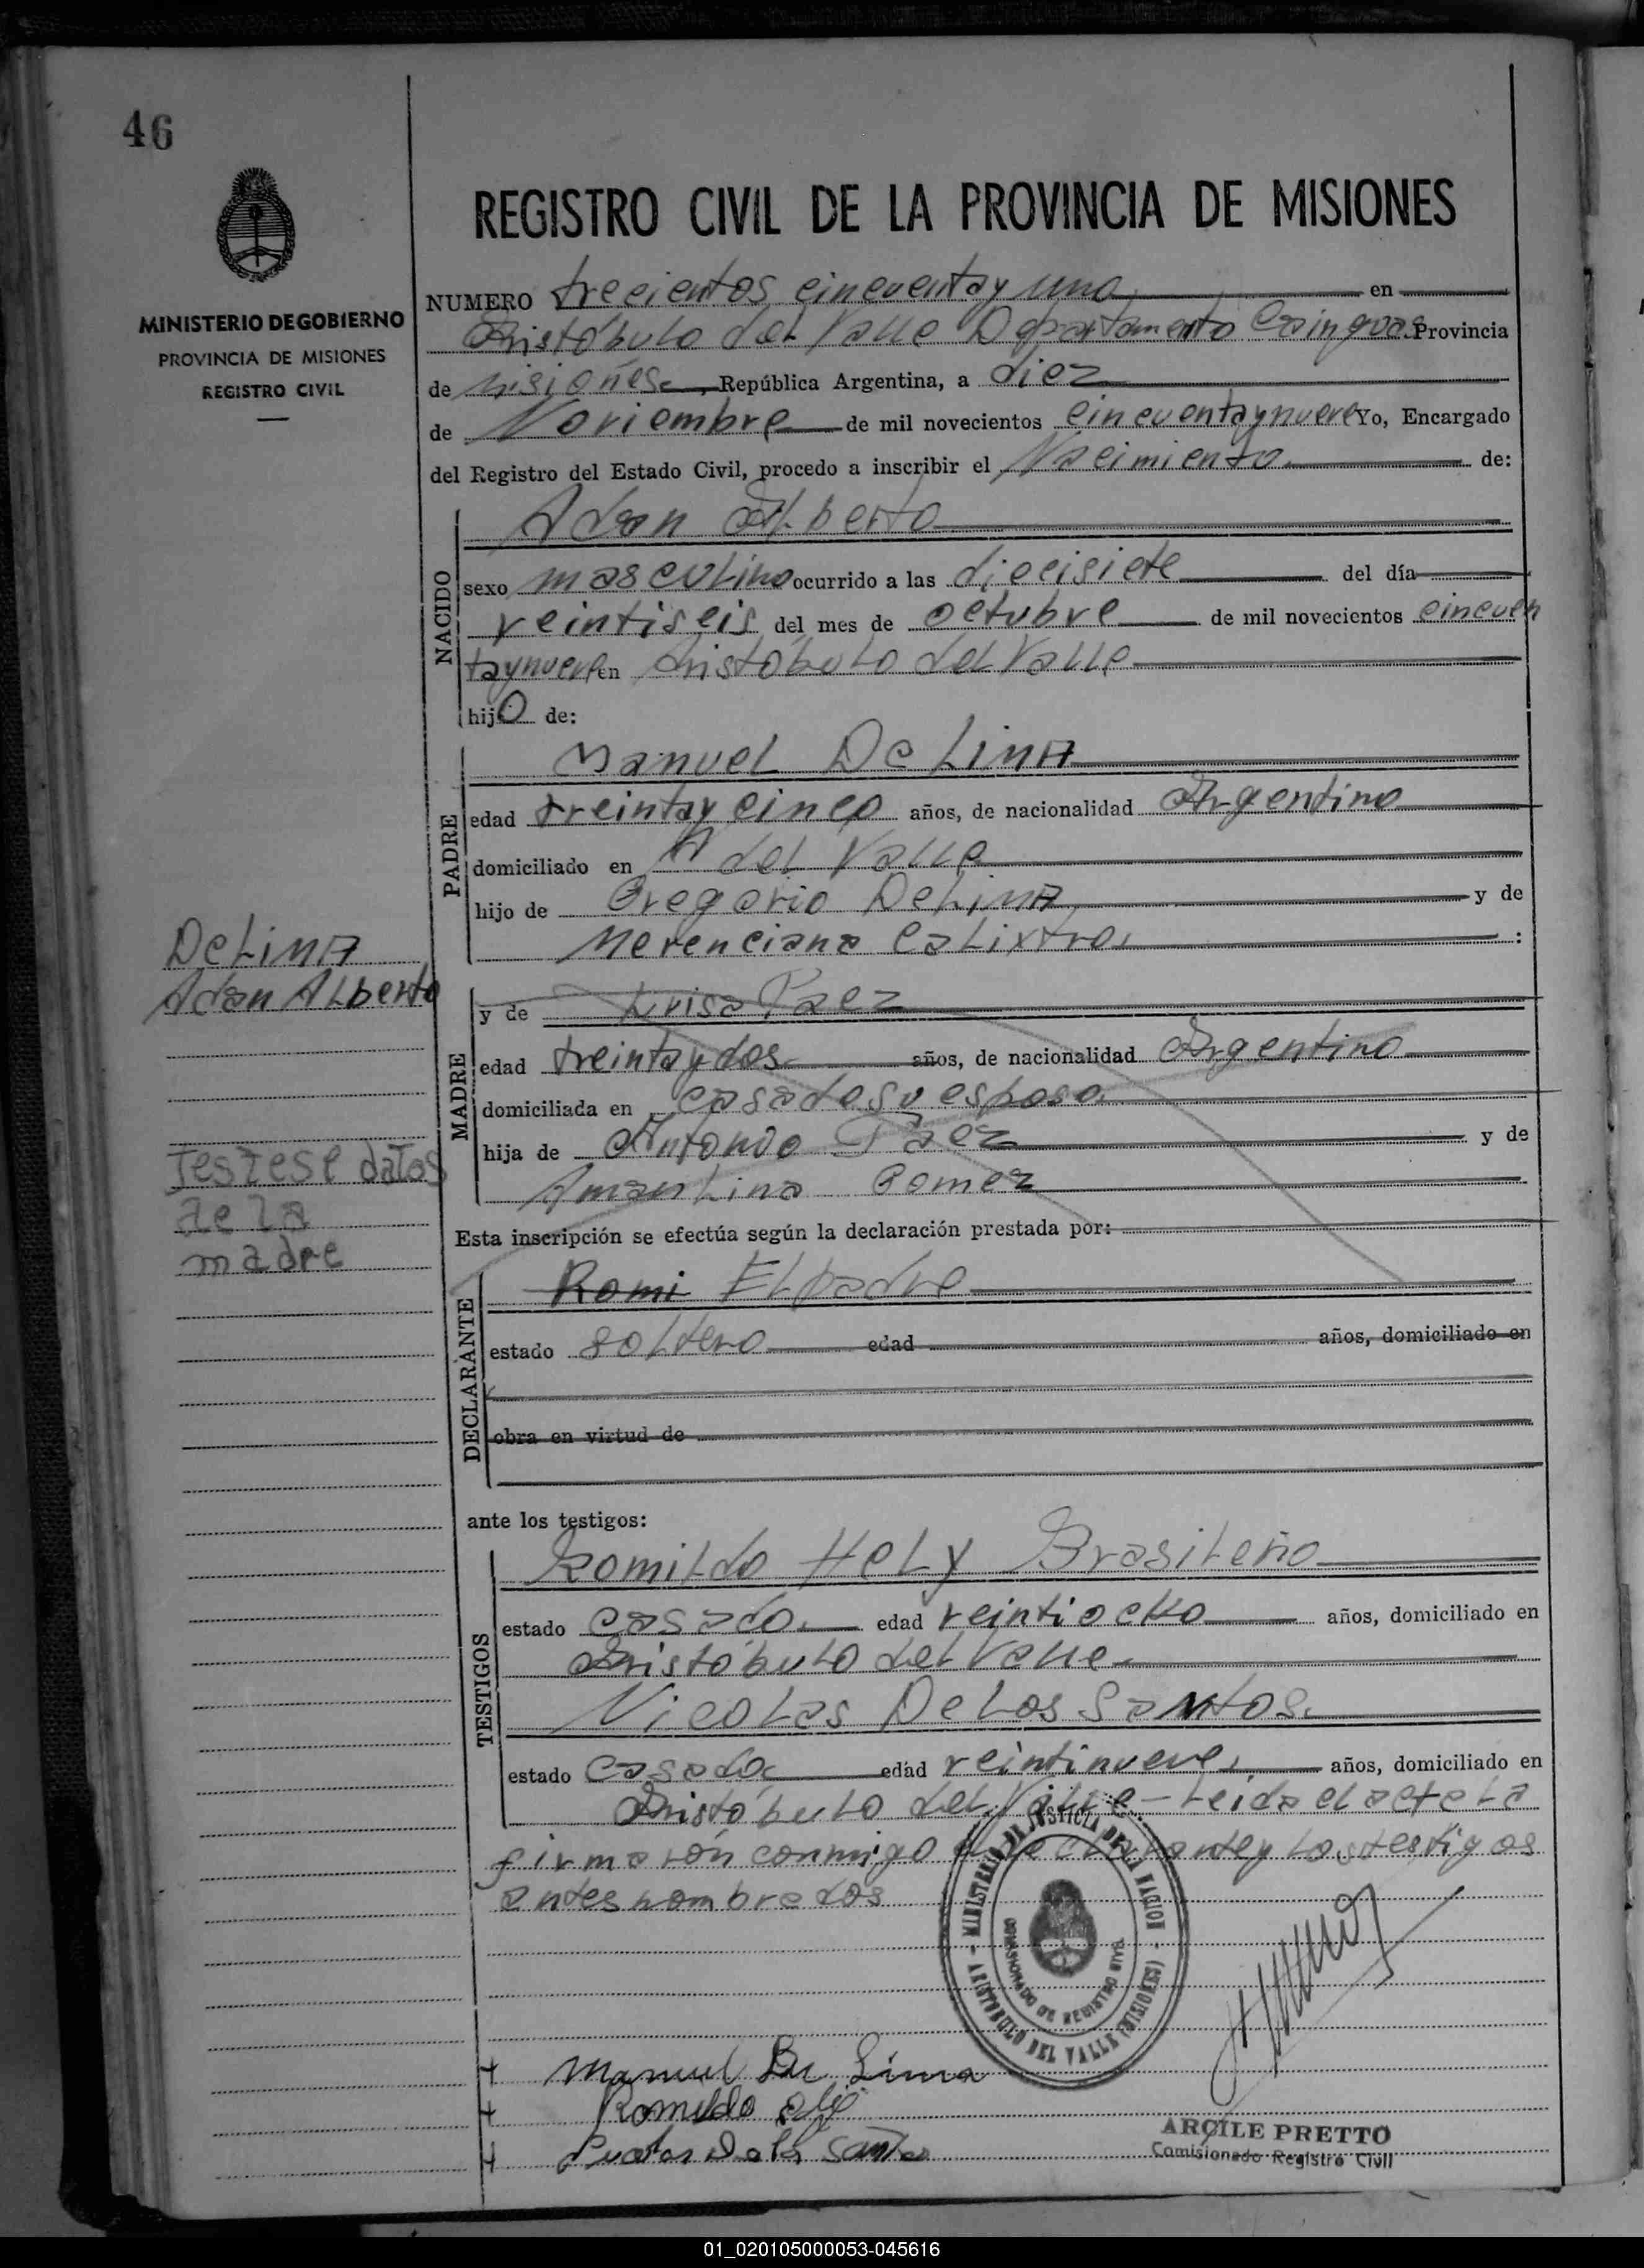 46
MINISTERIO DE GOBIERNO
PROVINCIA DE MISIONES
REGISTRO CIVIL
REGISTRO CIVIL DE LA PROVINCIA DE MISIONES
NUMERO trecientos cincuentay uno en
Aristóbulo del Valle Departamento Cainguas Provincia
de Misiones República Argentina, a diez
de Noviembre de mil novecientos cincuentaynueve Yo, Encargado
del Registro del Estado Civil, procedo a inscribir el Nacimiento de:
NACIDO
Adan Alberto
sexo masculino ocurrido a las diecisiete del día
veintiseis del mes de octubre de mil novecientos cincuen
taynueve en Aristóbulo del Valle
hijo de:
PADRE
Manuel De LimA
edad treintay cinco años, de nacionalidad Argentino
domiciliado en A del Valle
hijo de Gregorio DeLimA y de
Merenciana Calixtro :
DeLimA
Adan ALberto
MADRE
y de Luisa Paez
edad treintaydos años, de nacionalidad Argentino
domiciliada en casadesu esposo
hija de Antonio Paez y de
Gomez
Testese datos
de la
madre
Esta inscripción se efectúa según la declaración prestada por:
DECLARANTE
Romi El padre
estado soltero edad años, domiciliado en
obra en virtud de
ante los testigos:
TESTIGOS
Romildo HeLy Brasileño
estado casado edad veintiocho años, domiciliado en
Aristóbulo del Valle
Nicolas De Los Santos
estado casado edad veintinueve años, domiciliado en
Aristóbulo del Valle - Leida el acta La
firmarón conmigo el declarantey Lostestigos
antesnombrados
MINISTERIO DE JUSTICIA DE LA NACION
COMISIONADO DE REGISTRO CIVIL
ARISTOBULO DEL VALLE (MISIONES)
+ Manuel De Lima
+ Romildo
+ Santos
ARCILE PRETTO
Comisionado Registro Civil
01_020105000053-045616